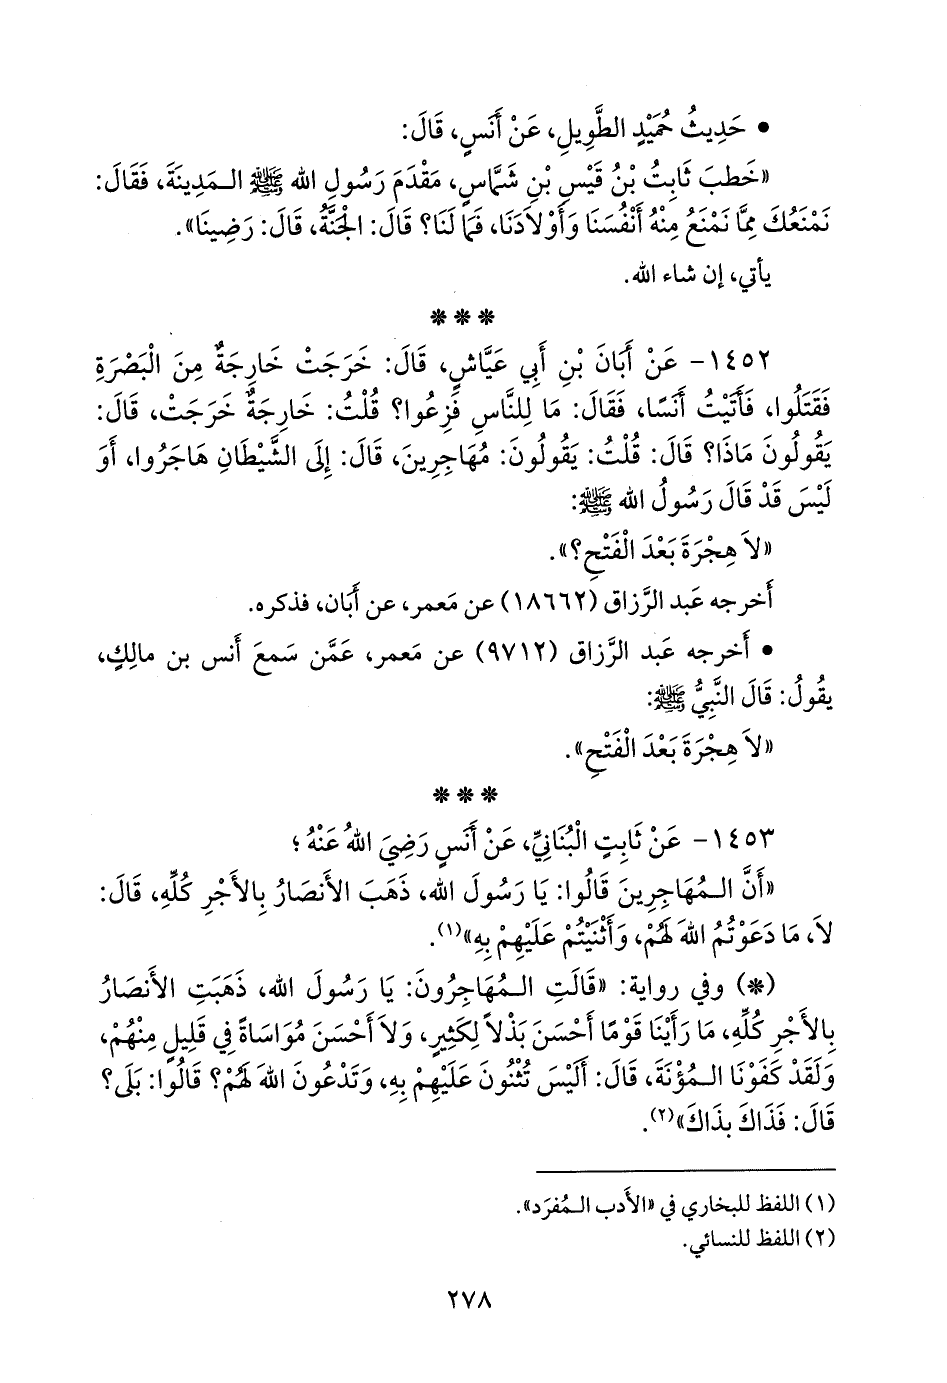 • حَدِيثُ حُمَيْدٍ الطَّوِيلِ، عَنْ أَنَسٍ، قَالَ:
«خَطبَ ثَابِتُ بْنُ قَيْسِ بْنِ شَمَّاسٍ، مَقْدَمَ رَسُولِ الله ﷺ الـمَدِينَةَ، فَقَالَ:
نَمْنَعُكَ مِمَّا نَمْنَعُ مِنْهُ أَنْفُسَنَا وَأَوْلَادَنَا، فَمَا لَنَا؟ قَالَ: الْجَنَّةُ، قَالَ: رَضِينَا».
يأتي، إن شاء الله.
* * *
١٤٥٢- عَنْ أَبَانَ بْنِ أَبِي عَيَّاشٍ، قَالَ: خَرَجَتْ خَارِجَةٌ مِنَ الْبَصْرَةِ
فَقَتَلُوا، فَأَتَيْتُ أَنَسًا، فَقَالَ: مَا لِلنَّاسِ فَزِعُوا؟ قُلْتُ: خَارِجَةٌ خَرَجَتْ، قَالَ:
يَقُولُونَ مَاذَا؟ قَالَ: قُلْتُ: يَقُولُونَ: مُهَاجِرِينَ، قَالَ: إِلَى الشَّيْطَانِ هَاجَرُوا، أَوَ
لَيْسَ قَدْ قَالَ رَسُولُ الله ﷺ:
«لاَ هِجْرَةَ بَعْدَ الْفَتْحِ؟».
أَخرجه عَبد الرَّزاق (١٨٦٦٢) عن مَعمر، عن أَبَان، فذكره.
• أَخرجه عَبد الرَّزاق (٩٧١٢) عن مَعمر، عَمَّن سَمعَ أَنس بن مالِكٍ،
يقُولُ: قَالَ النَّبِيُّ ﷺ:
«لاَ هِجْرَةَ بَعْدَ الْفَتْحِ».
* * *
١٤٥٣- عَنْ ثَابِتٍ الْبُنَانِيِّ، عَنْ أَنَسٍ رَضِيَ اللهُ عَنْهُ؛
«أَنَّ الـمُهَاجِرِينَ قَالُوا: يَا رَسُولَ الله، ذَهَبَ الأَنصَارُ بِالأَجْرِ كُلِّهِ، قَالَ:
لاَ، مَا دَعَوْتُمُ اللهَ لَهُمْ، وَأَثْنَيْتُمْ عَلَيْهِمْ بِهِ»(١).
(*) وفي رواية: «قَالَتِ الـمُهَاجِرُونَ: يَا رَسُولَ الله، ذَهَبَتِ الأَنصَارُ
بِالأَجْرِ كُلِّهِ، مَا رَأَيْنَا قَوْمًا أَحْسَنَ بَذْلاً لِكَثِيرٍ، وَلاَ أَحْسَنَ مُوَاسَاةً فِي قَلِيلٍ مِنْهُمْ،
وَلَقَدْ كَفَوْنَا الـمُؤْنَةَ، قَالَ: أَلَيْسَ تُثْنُونَ عَلَيْهِمْ بِهِ، وَتَدْعُونَ اللهَ لَهُمْ؟ قَالُوا: بَلَى؟
قَالَ: فَذَاكَ بِذَاكَ»(٢).
(١) اللفظ للبخاري في «الأَدب الـمُفرَد».
(٢) اللفظ للنسائي.
٢٧٨